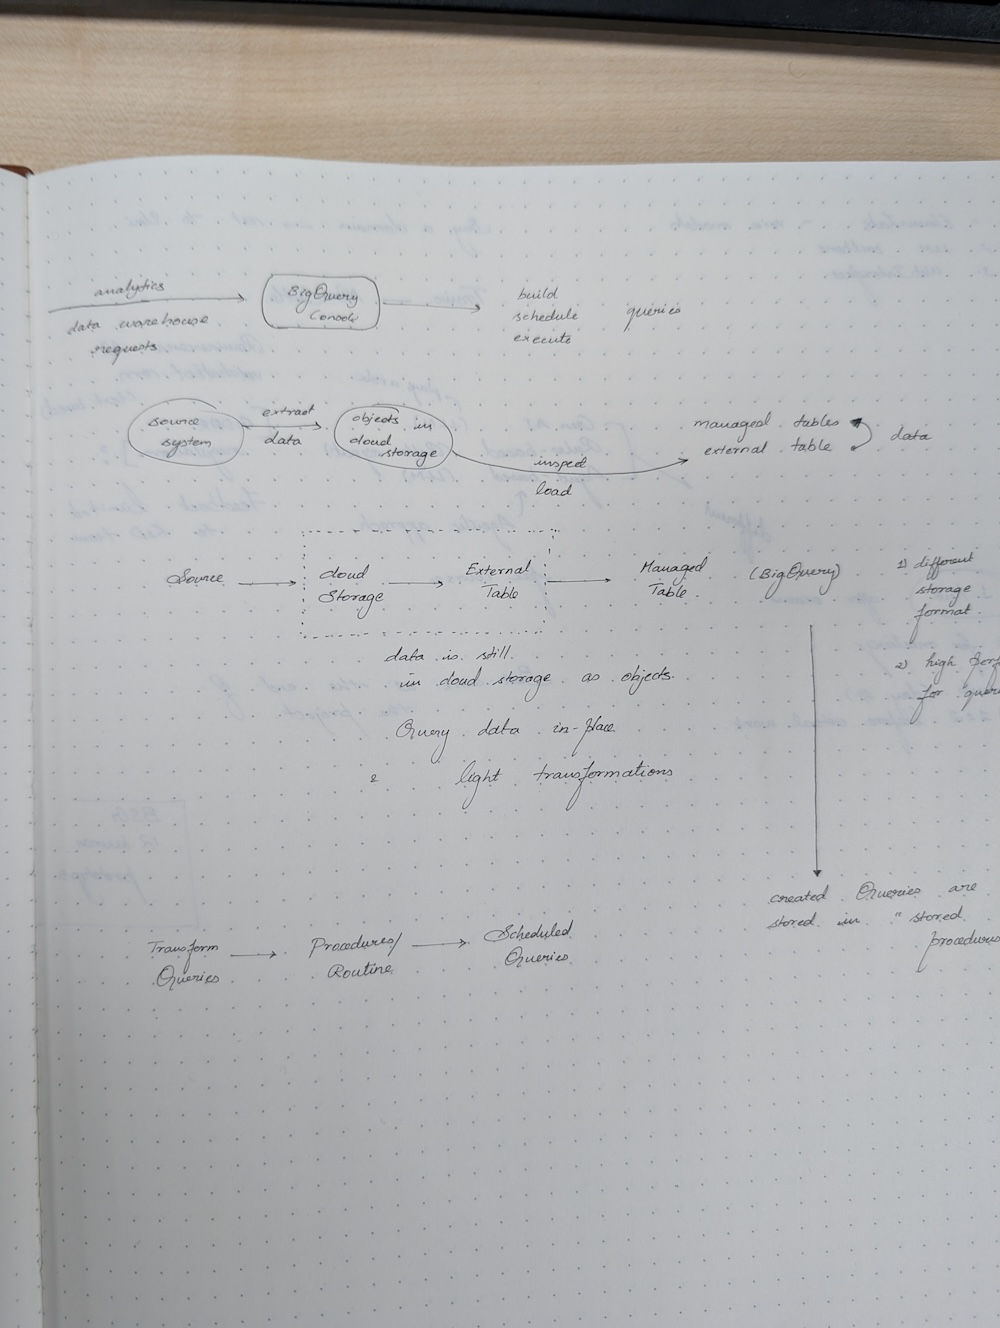 analytics
data warehouse
requests
BigQuery
Console
build
schedule queries
execute
source
system
extract
data
objects in
cloud
storage
inspect
load
managed tables
external table
data
Source
Cloud
Storage
External
Table
Managed
Table
(BigQuery)
1) different
storage
format
2) high
for
data is still
in cloud storage as objects.
Query data in-place
& light transformations
created Queries are
stored in "stored
procedures
Transform
Queries
Procedures/
Routine
Scheduled
Queries